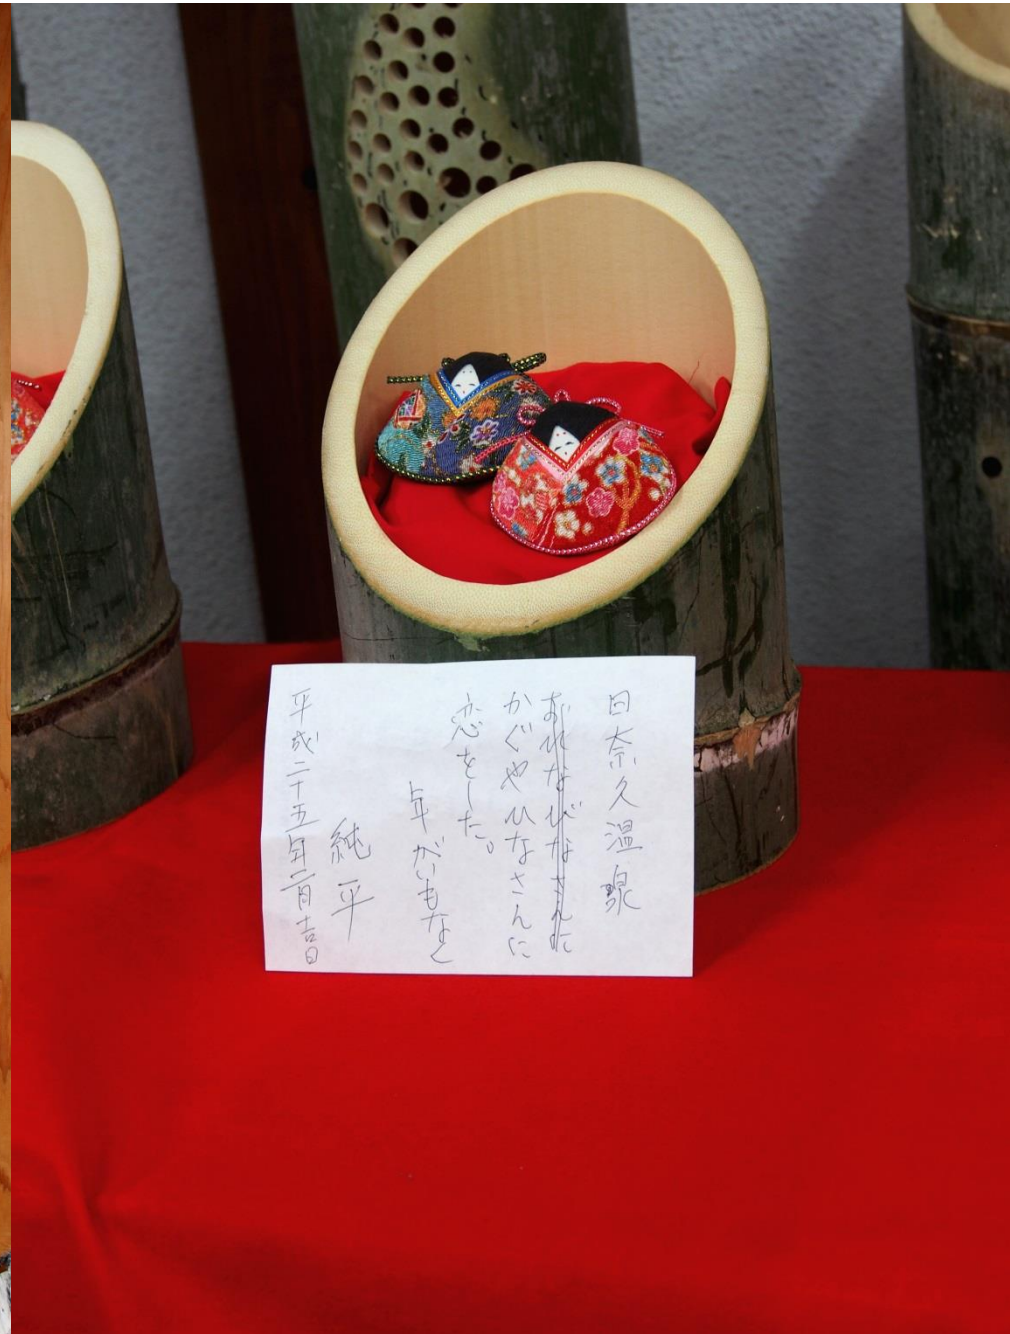 日奈久温泉
おひなびなさんに
かぐやひなさんに
恋をした。
年がいもなく
純平
平成二十五年二月吉日